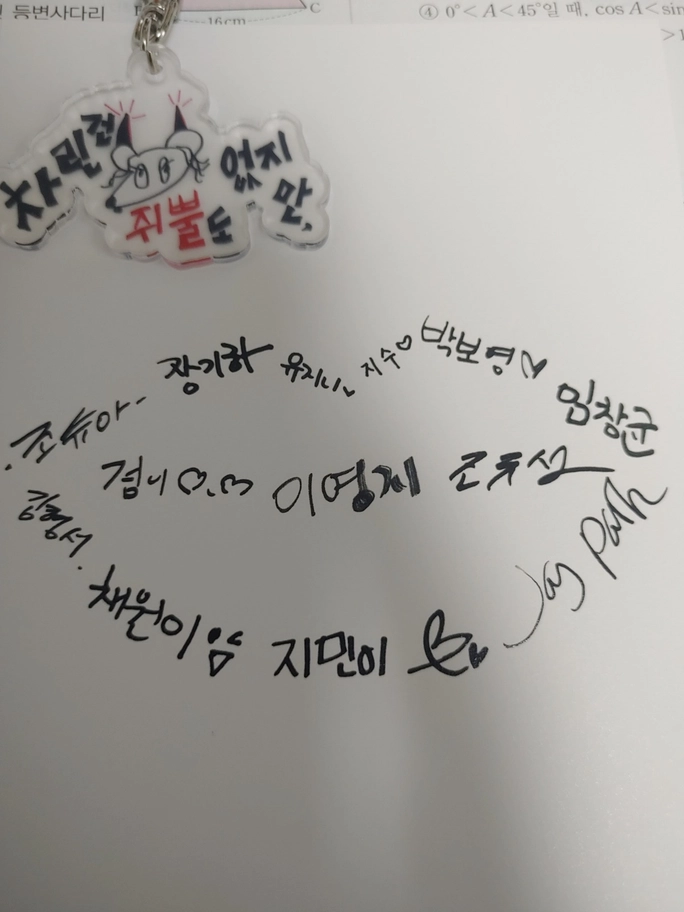 등변사다리
16cm
C
④ 0°<A<45°일 때, cos A<sin
차린건
쥐뿔도
없지
만,
장기하
유지니
지수♡
박보영♡
임창균
조슈아-
겸이♡.♡
이영지
강형서.
채원이얌
지민이
Jay Park